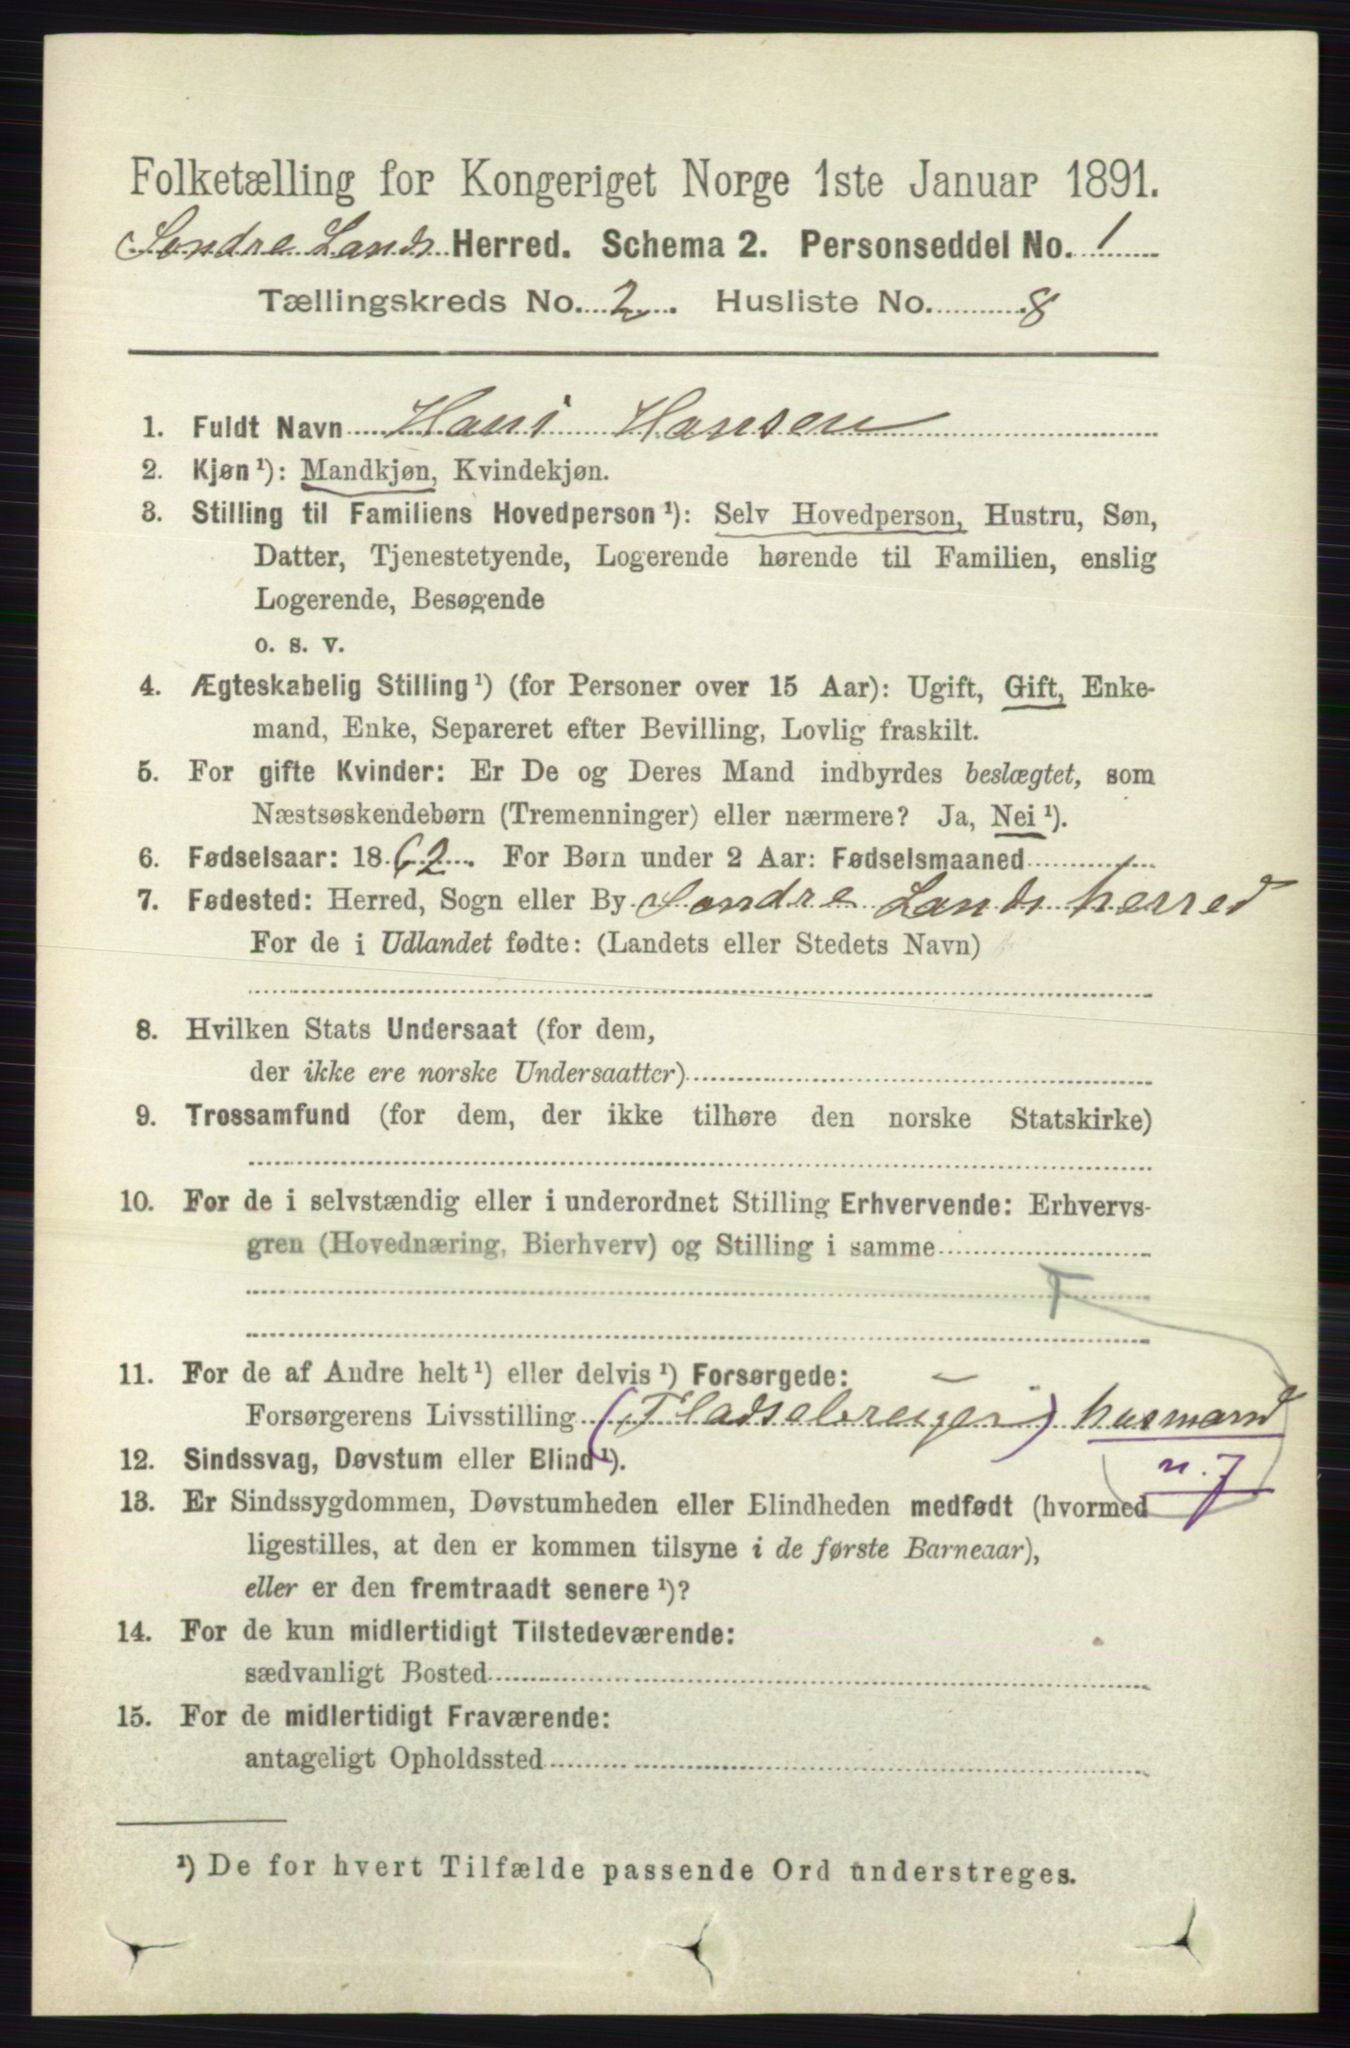 Folketælling for Kongeriget Norge 1ste Januar 1891.
Søndre Lands Herred. Schema 2. Personseddel No. 1
Tællingskreds No. 2. Husliste No. 8
1. Fuldt Navn Hans Hansen
2. Kjøn¹): Mandkjøn, Kvindekjøn.
3. Stilling til Familiens Hovedperson¹): Selv Hovedperson, Hustru, Søn,
Datter, Tjenestetyende, Logerende hørende til Familien, enslig
Logerende, Besøgende
o. s. v.
4. Ægteskabelig Stilling¹) (for Personer over 15 Aar): Ugift, Gift, Enke-
mand, Enke, Separeret efter Bevilling, Lovlig fraskilt.
5. For gifte Kvinder: Er De og Deres Mand indbyrdes beslægtet, som
Næstsøskendebørn (Tremenninger) eller nærmere? Ja, Nei¹).
6. Fødselsaar: 1862. For Børn under 2 Aar: Fødselsmaaned
7. Fødested: Herred, Sogn eller By Søndre Lands herred
For de i Udlandet fødte: (Landets eller Stedets Navn)
8. Hvilken Stats Undersaat (for dem,
der ikke ere norske Undersaatter)
9. Trossamfund (for dem, der ikke tilhøre den norske Statskirke)
10. For de i selvstændig eller i underordnet Stilling Erhvervende: Erhvervs-
gren (Hovednæring, Bierhverv) og Stilling i samme
11. For de af Andre helt¹) eller delvis¹) Forsørgede:
Forsørgerens Livsstilling (Pladsebruger) husmand
n. 7
12. Sindssvag, Døvstum eller Blind¹).
13. Er Sindssygdommen, Døvstumheden eller Blindheden medfødt (hvormed
ligestilles, at den er kommen tilsyne i de første Barneaar),
eller er den fremtraadt senere¹)?
14. For de kun midlertidigt Tilstedeværende:
sædvanligt Bosted
15. For de midlertidigt Fraværende:
antageligt Opholdssted
¹) De for hvert Tilfælde passende Ord understreges.